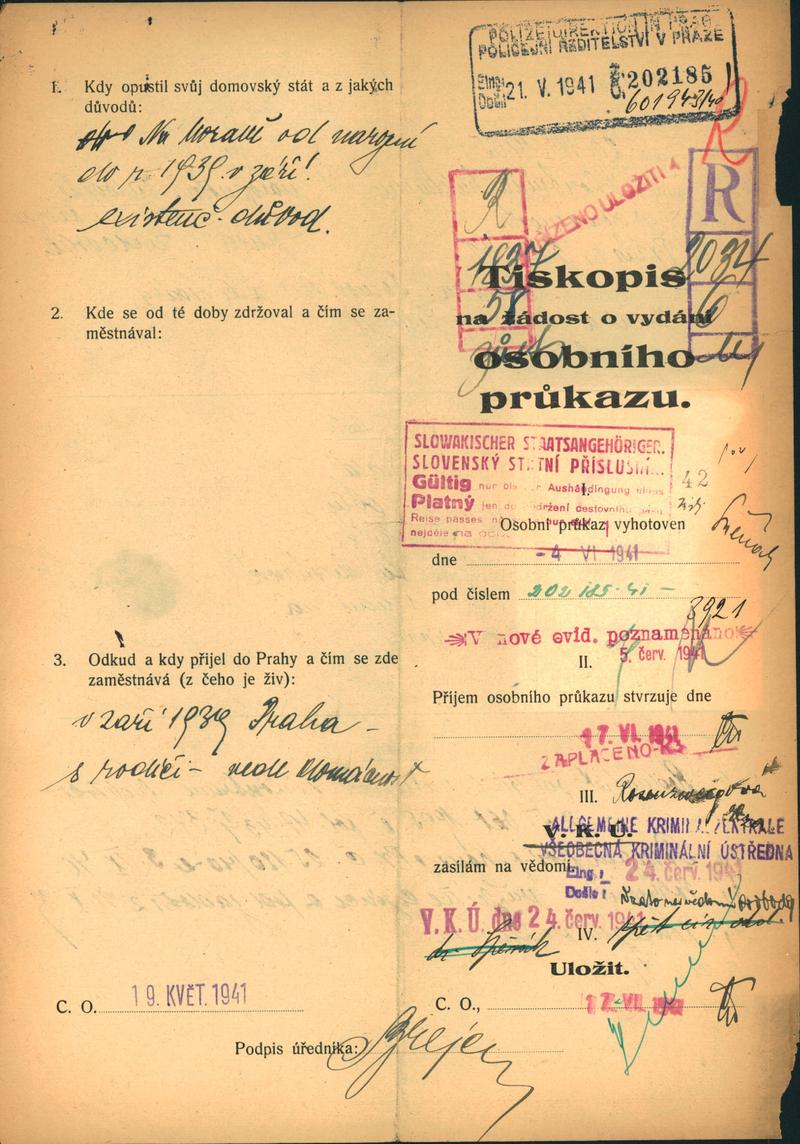 1. Kdy opustil svůj domovský stát a z jakých
důvodů:
Na Moravě od narození
do r. 1939 v září!
existenč. důvod.
2. Kde se od té doby zdržoval a čím se za-
městnával:
3. Odkud a kdy přijel do Prahy a čím se zde
zaměstnává (z čeho je živ):
v září 1939 Praha –
s rodiči – vede domácnost
C. O. 19. KVĚT. 1941
Podpis úředníka:
POLIZEIDIREKTION IN PRAG
POLICEJNÍ ŘEDITELSTVÍ V PRAZE
Eing.
Došlo 21. V. 1941 Č. 202185
601943/40
R
R
R
ULOŽITI
1837
58
2034
6
Tiskopis
na žádost o vydání
osobního
průkazu.
SLOWAKISCHER STAATSANGEHÖRIGER.
SLOVENSKÝ STÁTNÍ PŘÍSLUŠNÍ
Gültig nur bis zur Aushändigung eines
Platný jen do obdržení cestovního pasu
Reise passes
nejdéle na dobu
42
I.
Osobní průkaz vyhotoven
dne -4 VI 1941
pod číslem 202185-41 –
8921
V nové evid. poznamenáno
5. červ. 1941
II.
Příjem osobního průkazu stvrzuje dne
17. VI. 1941
ZAPLACENO-K3
III. Rosenzweigová
V. K. Ú.
ALLGEMEINE KRIMINALZENTRALE
VŠEOBECNÁ KRIMINÁLNÍ ÚSTŘEDNA
zasílám na vědomí.
Eing.:
Došlo: 24. červ. 1941
V.K.Ú. dne 24. červ. 1941
IV.
Uložit.
C. O., 17. VII. 1941